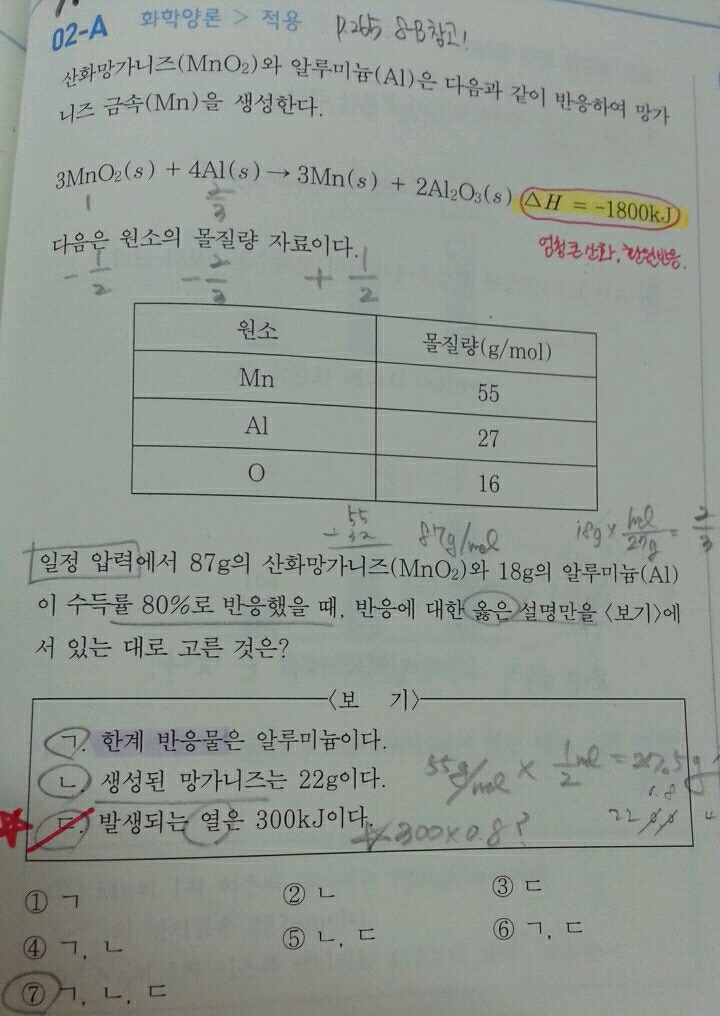 02-A 화학양론 > 적용 p.265 8-B참고!
산화망가니즈(MnO₂)와 알루미늄(Al)은 다음과 같이 반응하여 망가
니즈 금속(Mn)을 생성한다.
3MnO₂(s) + 4Al(s) → 3Mn(s) + 2Al₂O₃(s) ΔH = -1800kJ
1 2/3
엄청큰 산화, 환원반응.
다음은 원소의 몰질량 자료이다.
- 1/2 - 2/3 + 1/2
원소 몰질량(g/mol)
Mn 55
Al 27
O 16
55
32 87g/mol 18g × mol/27g = 2/3
일정 압력에서 87g의 산화망가니즈(MnO₂)와 18g의 알루미늄(Al)
이 수득률 80%로 반응했을 때, 반응에 대한 옳은 설명만을 〈보기〉에
서 있는 대로 고른 것은?
〈보 기〉
ㄱ. 한계 반응물은 알루미늄이다.
ㄴ. 생성된 망가니즈는 22g이다.
55g/mol × 1/2 mol = 27.5g
ㄷ. 발생되는 열은 300kJ이다.
300×0.8?
0.8
22
① ㄱ
② ㄴ
③ ㄷ
④ ㄱ, ㄴ
⑤ ㄴ, ㄷ
⑥ ㄱ, ㄷ
⑦ ㄱ, ㄴ, ㄷ